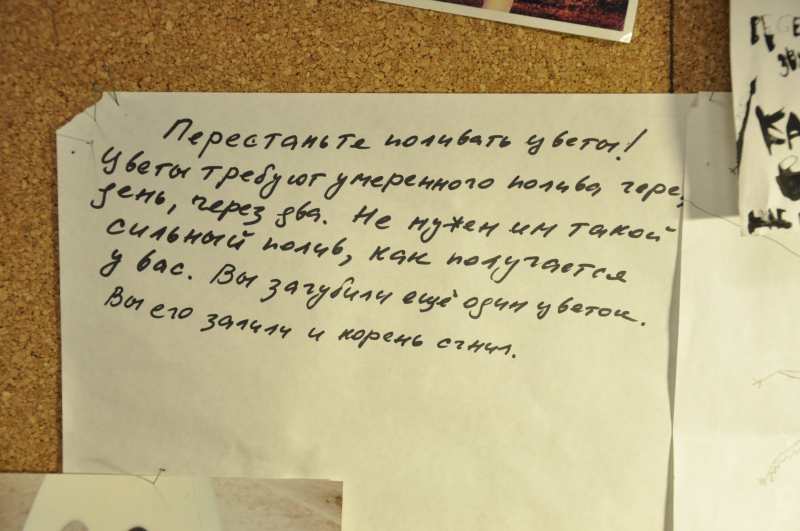 Перестаньте поливать цветы!
Цветы требуют умеренного полива чере
день, через два. Не нужен им такой
сильный полив, как получается
у вас. Вы загубили ещё один цветок.
Вы его залили и корень сгнил.